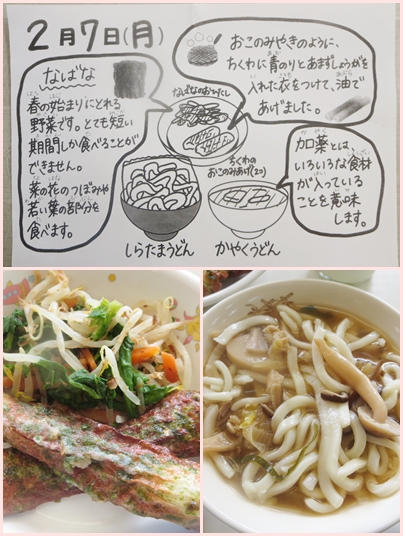 2月7日(月)
なばな
春の始まりにとれる
野菜です。とても短い
期間しか食べることが
できません。
菜の花のつぼみや
若い葉の部分を
食べます。
おこのみやきのように、
ちくわに青のりとあまずしょうがを
入れた衣をつけて、油で
あげました。
なばなのおひたし
ちくわの
おこのみあげ(2こ)
加薬とは、
いろいろな食材
が入っている
ことを意味
します。
しらたまうどん
かやくうどん